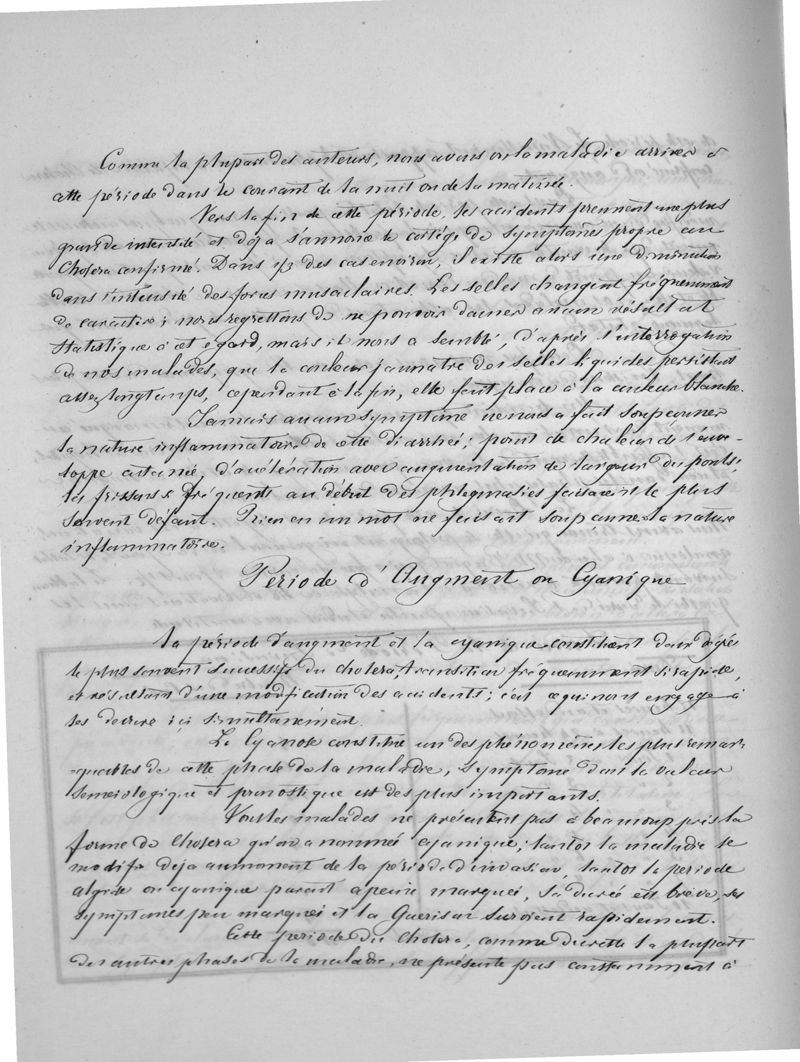 Comme la plupart des auteurs, nous avons vu la maladie arriver à
cette période dans le courant de la nuit ou de la matinée.
Vers la fin de cette période, les accidents prennent une plus
grande intensité et déja s'annonce le cortége de symptômes propre au
Cholera confirmé. Dans des cas environ, il existe alors une diminution
dans l'intensité des forces musculaires. Les selles changent fréquemment
de caractère; nous regrettons de ne pouvoir donner aucun résultat
Statistique à cet égard, mais il nous a semblé, d'après l'interrogation
de nos malades, que la couleur jaunatre des selles liquides persistait
assez longtemps, cependant à la fin, elle fait place à la couleur blanche.
Jamais aucun symptôme ne nous a fait soupçonner
la nature inflammatoire de cette diarrhée; point de chaleur de l'enve-
loppe cutanée, d'accélération avec augmentation de largeur du pouls;
les frissons fréquents au début des phlegmasies faisaient le plus
souvent défaut. Rien en un mot ne faisait soupçonner sa nature
inflammatoire.
Période d'Augment ou Cyanique
La période d'augment et la cyanique constituent deux degrés
le plus souvent successifs du cholera, transition fréquemment si rapide,
et résultant d'une modification des accidents; c'est ce qui nous engage à
les decrire ici simultanément.
La Cyanose constitue un des phénomènes les plus remar-
quables de cette phase de la maladie, symptôme dont la valeur
Semeiologique et pronostique est des plus importants.
Tous les malades ne présentent pas à beaucoup près la
forme de Cholera qu'on a nommée cyanique; tantot la maladie se
modifie deja au moment de la période d'invasion, tantot la periode
algide ou cyanique parait à peine marquée, sa durée est brève, ses
symptômes peu marqués et la Guerison survient rapidement.
Cette periode du Cholera, comme du reste la plupart
des autres phases de la maladie, ne présente pas constamment à